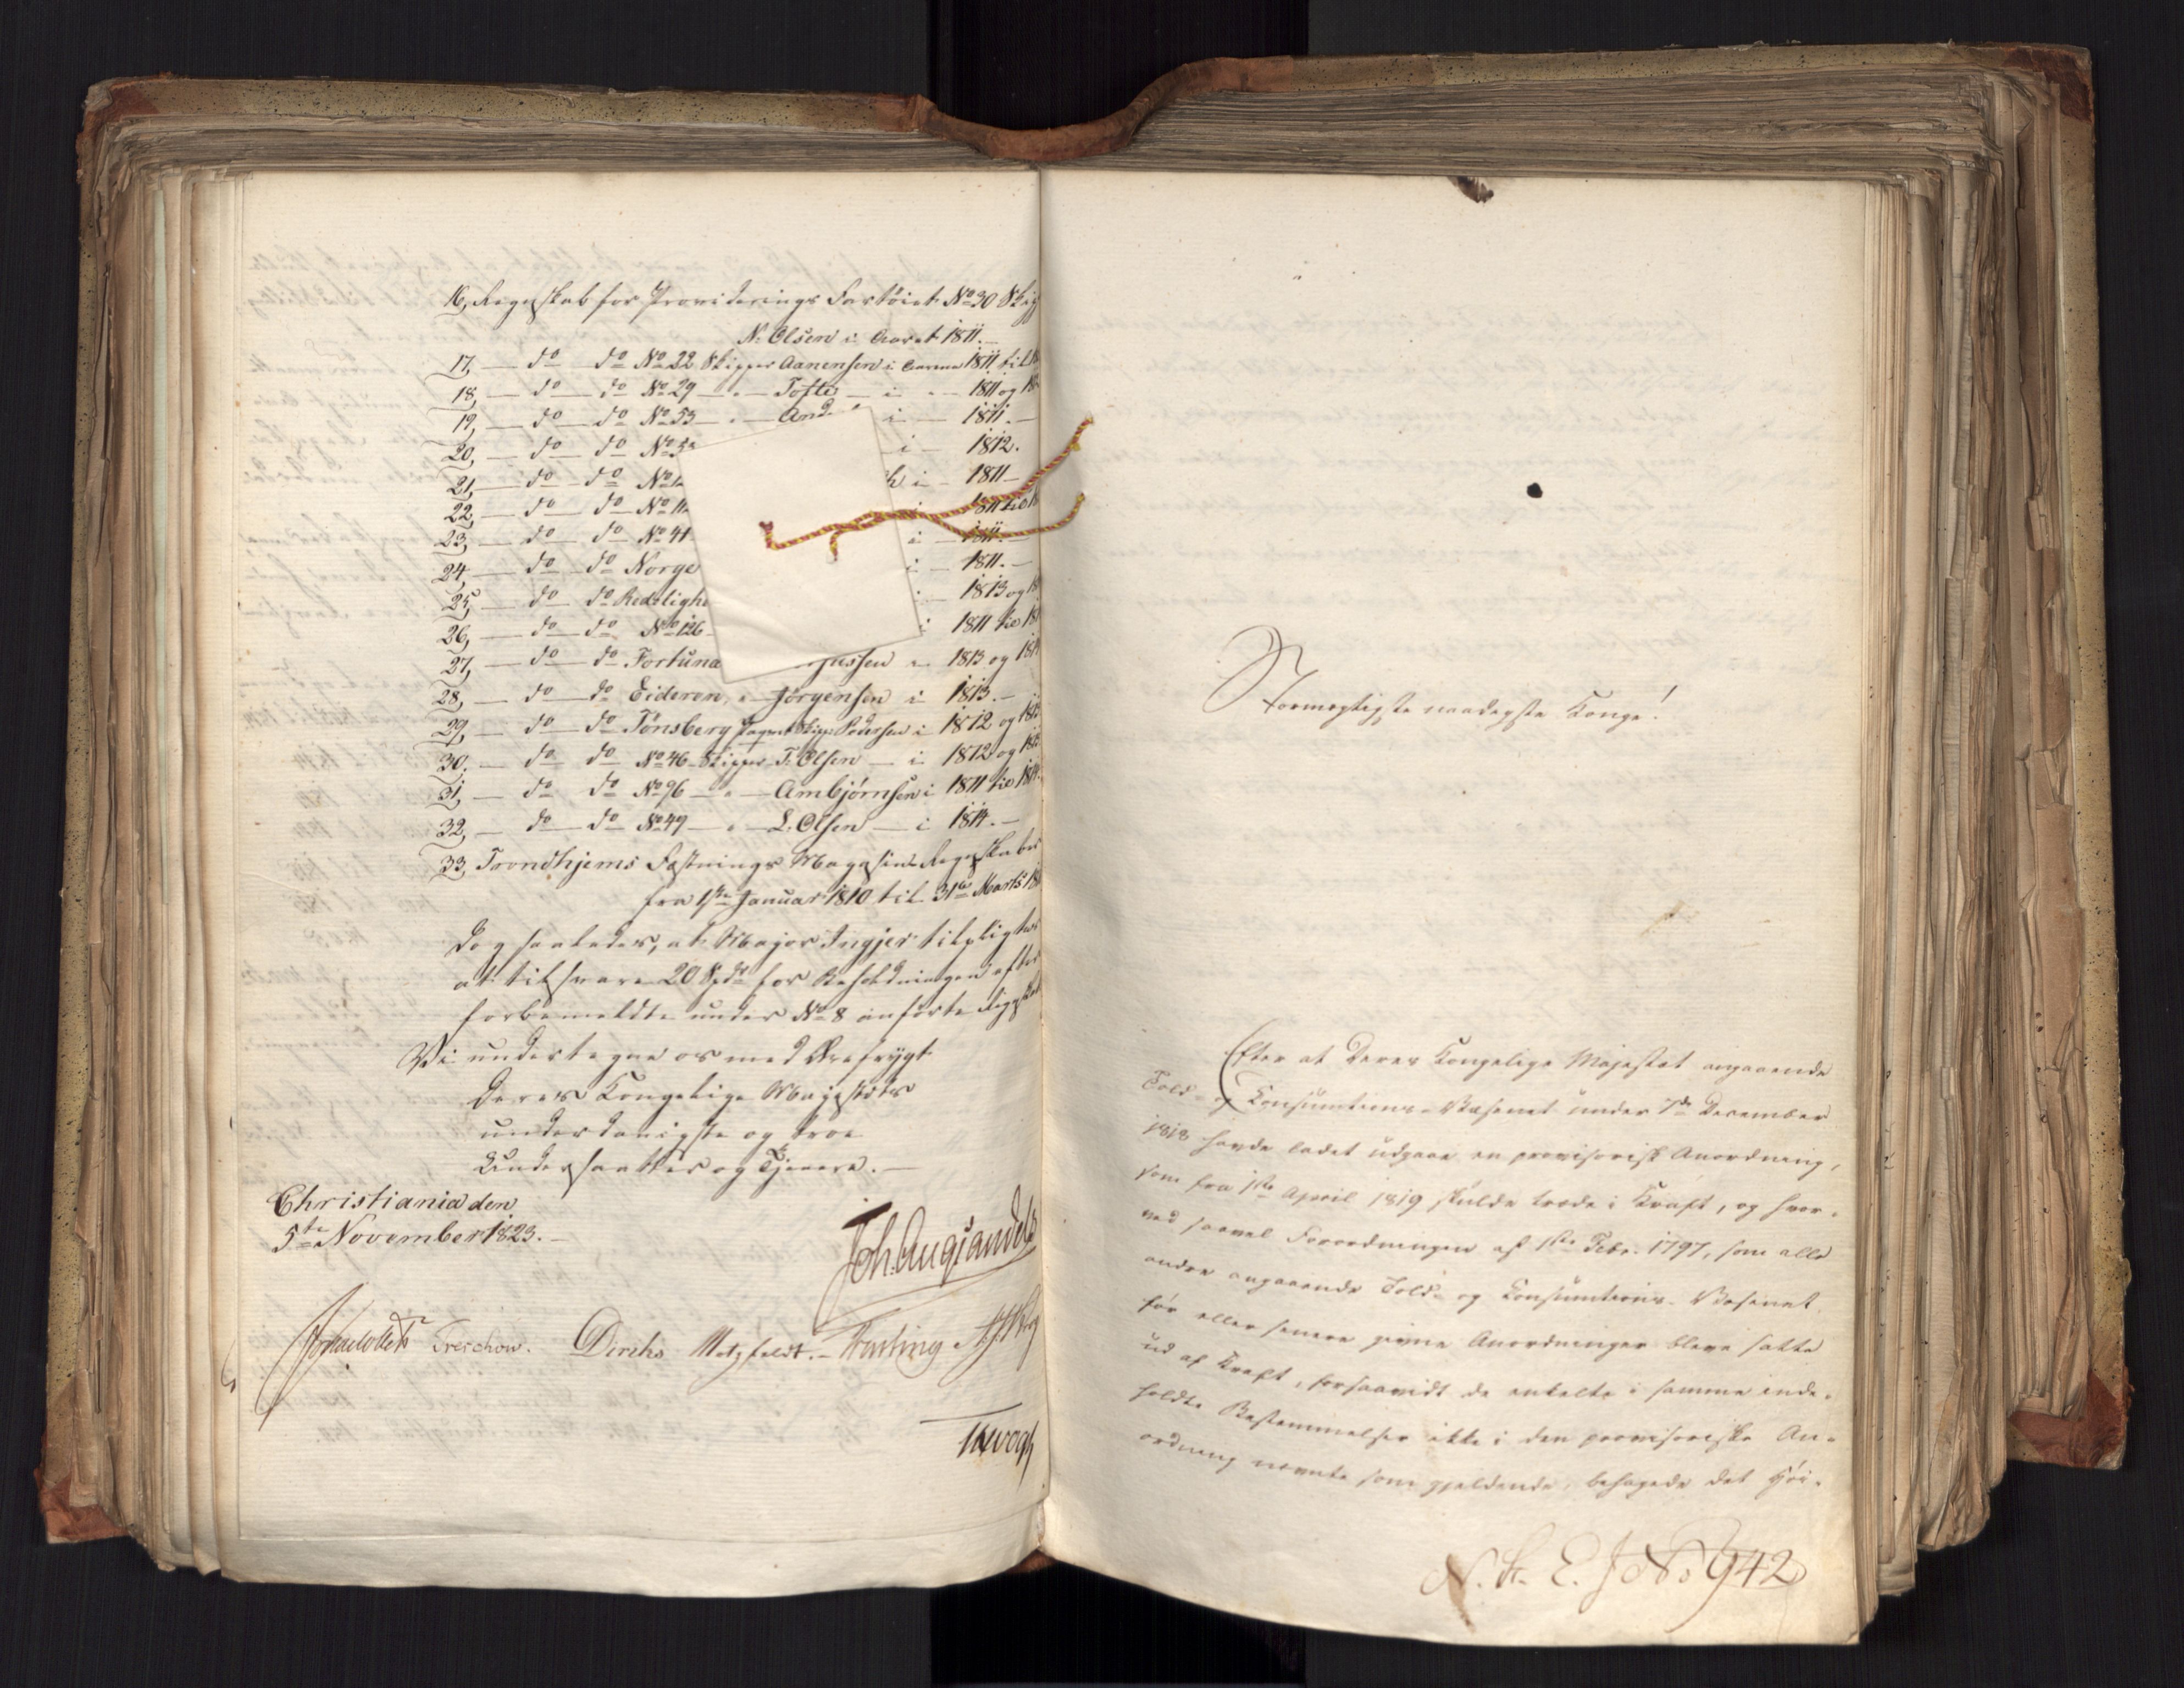 16, Regnskab for Provideringsfartöiet No 30 Skip
N. Olsen i Aaret 1811.
17, — do — do No 22 Skipper Aanensen i Aarene 1811 til
18, — do — do No 29 — " — Tofte — i — 1811 og
19, — do — do No 53 — " — And i — 1811. —
20, — do — do No i — 1812.
21, — do — do No i — 1811 —
22, — do — do No 1811 til
23, — do — do No 41 i — 1811. —
24, — do — do Norge i — 1811. —
25, — do — do Redeligh 1813 og
26, — do — do No 126 i 1811 til
27, — do — do Fortuna i 1813 og
28, — do — do Eideren, " — Jörgensen i 1813. —
29, — do — do Tönsberg Skip: Pedersen i 1812 og
30. — do — do No 46 — Skipper T. Olsen — i 1812 og
31, — do — do No 96 — " — Ambjörnsen i 1811 til
32, — do — do No 49 — " — L. Olsen — i 1814. —
33, Trondhjems Fæstnings Magasins Regnskaber
fra 1ste Januar 1810 til 31te Marts
dog saaledes, at Major Ingjer tilpligtes
at tilsvare 20 Spd. for Beholdningen efter
forbemeldte under No 8 anförte
Vi undertegne os med Ærefrygt
Deres Kongelige Majestæts
underdanigste og troe
Undersaatter og Tjenere. —
Christiania den
5te November 1823. —
Joh. Aug. Sandels
Treschow. Diriks Motzfeldt. — Fasting
Stormægtigste naadigste Konge!
Efter at Deres Kongelige Majestæt angaaende
Told- og Consumtions-Væsenet under 7de December
1818 havde ladet udgaae en provisorisk Anordning,
som fra 1ste April 1819 skulde træde i Kraft, og hvor-
ved saavel Forordningen af 1ste Febr. 1797, som alle
andre angaaende Told- og Consumtions-Væsenet
för eller senere givne Anordninger bleve satte
ud af Kraft, forsaavidt de enkelte i samme inde-
holdte Bestemmelser ikke i den provisoriske An-
ordning nævnte som gjeldende, behagede det Höi-
N. St. E. J No 942